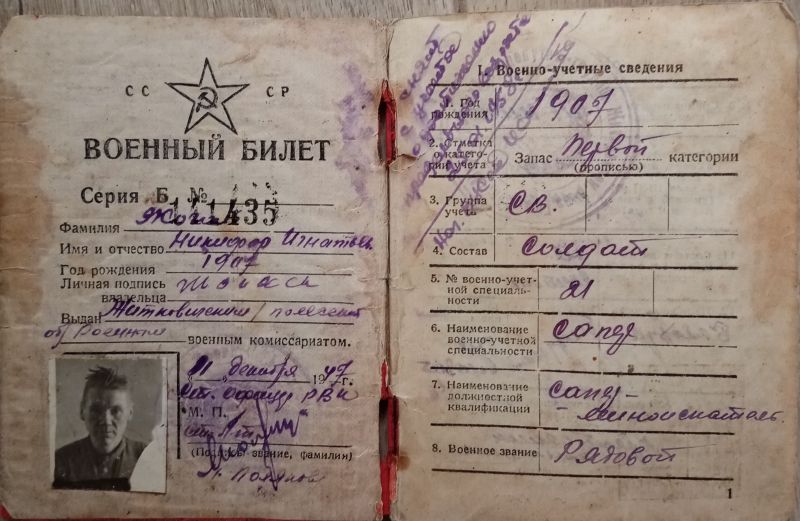 СС СР
ВОЕННЫЙ БИЛЕТ
Серия Б № 141435
Фамилия
Имя и отчество Никифор Игнатьев.
Год рождения 1907
Личная подпись
владельца
Выдан Житковичским / полесской
обл военным военным комиссариатом.
"11" декабря 1947 г.
Ст. офицер РВК
М. П.
(Подпись, звание, фамилия)
снят
с учета
по
возраста
I. Военно-учетные сведения
1. Год рождения 1907
2. Отметка о категории учета Запас Первой категории
(прописью)
3. Группа учета СВ.
4. Состав Солдат
5. № военно-учетной специальности 21
6. Наименование военно-учетной специальности сапер
7. Наименование должностной квалификации сапер-миноискатель
8. Военное звание Рядовой
1